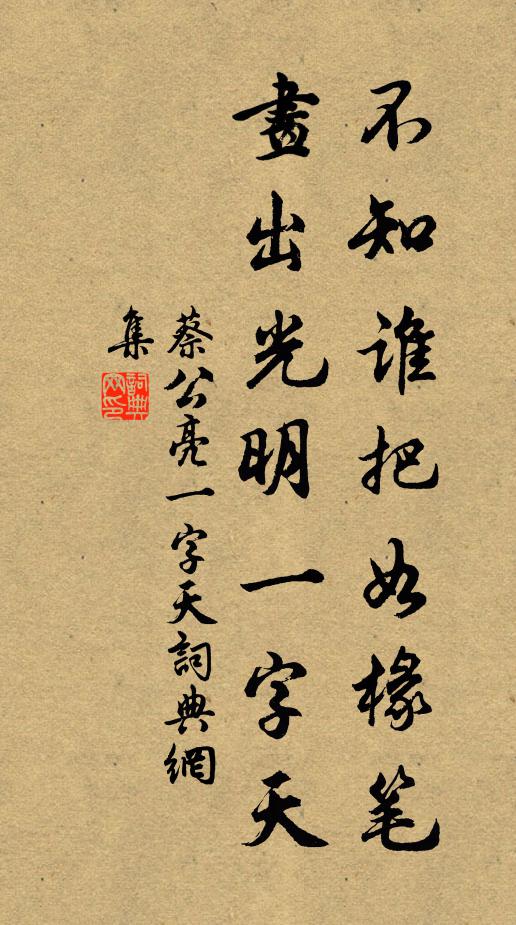 不知谁把如椽笔
畫出光明一字天
蔡公亮一字天詞典網
集
詞典網印